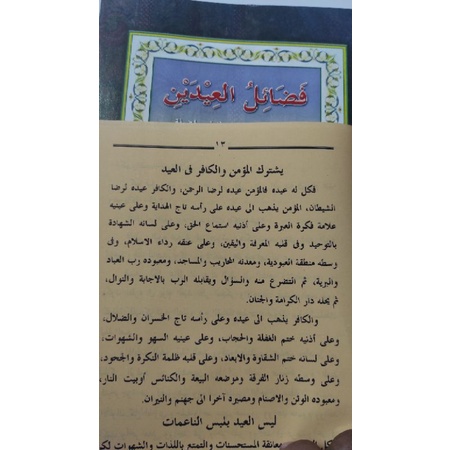 فَضَائِلُ العِيْدَيْنِ
١٣
يشترك المؤمن والكافر فى العيد
فكل له عيده فالمؤمن عيده لرضا الرحمن، والكافر عيده لرضا
الشيطان، المؤمن يذهب الى عيده على رأسه تاج الهداية وعلى عينيه
علامة فكرة العبرة وعلى أذنيه استماع الحق، وعلى لسانه الشهادة
بالتوحيد وفى قلبه المعرفة واليقين، وعلى عنقه رداء الاسلام، وفى
وسطه منطقة العبودية، ومعدنه المحاريب والمساجد، ومعبوده رب العباد
والبرية، ثم التضرع منه والسؤال ويقابله الرب بالاجابة والنوال،
ثم يحله دار الكرامة والجنان.
والكافر يذهب الى عيده وعلى رأسه تاج الخسران والضلال،
وعلى أذنيه ختم الغفلة والحجاب، وعلى عينيه السهو والشهوات،
وعلى لسانه ختم الشقاوة والابعاد، وعلى قلبه ظلمة النكرة والجحود،
وعلى وسطه زنار الفرقة وموضعه البيعة والكنائس أوبيت النار،
ومعبوده الوثن والاصنام ومصيره آخرا الى جهنم والنيران.
ليس العيد بلبس الناعمات
بمعانقة المستحسنات والتمتع باللذات والشهوات لكن